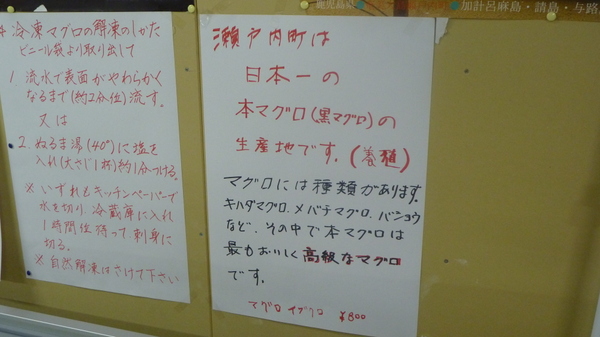 冷凍マグロの解凍のしかた
ビニール袋より取り出して
1. 流水で表面がやわらかく
なるまで(約2分位)流す。
又は
2. ぬるま湯(40°)に塩を
入れ(大さじ1杯)約1分つける。
※ いずれもキッチンペーパーで
水を切り、冷蔵庫に入れ
1時間位待って、刺身に
切る。
※ 自然解凍はさけて下さい
鹿児島県
加計呂麻島・請島・与路
瀬戸内町は
日本一の
本マグロ(黒マグロ)の
生産地です。(養殖)
マグロには種類があります。
キハダマグロ、メバチマグロ、バショウ
など、その中で本マグロは
最もおいしく高級なマグロ
です。
マグロ イブクロ ¥800